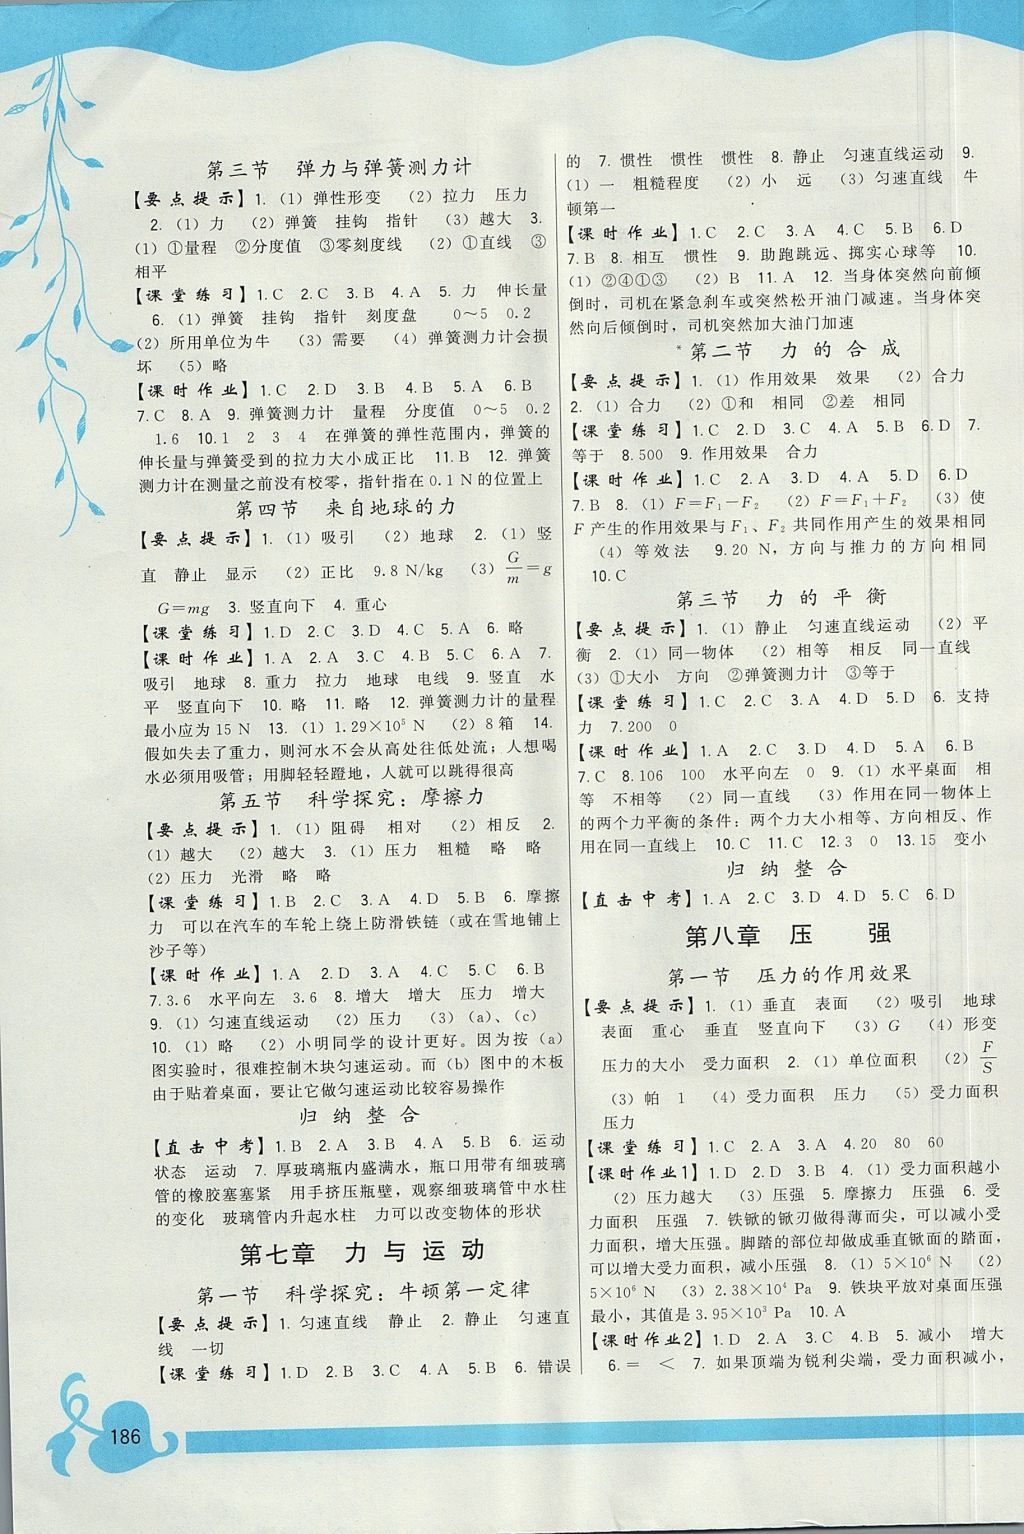 第三节　弹力与弹簧测力计
【要点提示】1.（1）弹性形变　（2）拉力　压力
2.（1）力　（2）弹簧　挂钩　指针　（3）越大　3.
（1）①量程　②分度值　③零刻度线　（2）①直线　③
相平
【课堂练习】1.C　2.C　3.B　4.A　5.力　伸长量
6.（1）弹簧　挂钩　指针　刻度盘　0～5　0.2
（2）所用单位为牛　（3）需要　（4）弹簧测力计会损
坏　（5）略
【课时作业】1.C　2.D　3.B　4.B　5.A　6.B
7.C　8.A　9.弹簧测力计　量程　分度值　0～5　0.2
1.6　10.1　2　3　4　在弹簧的弹性范围内，弹簧的
伸长量与弹簧受到的拉力大小成正比　11.B　12.弹簧
测力计在测量之前没有校零，指针指在0.1 N的位置上
第四节　来自地球的力
【要点提示】1.（1）吸引　（2）地球　2.（1）竖
直　静止　显示　（2）正比　9.8 N/kg　（3）G/m＝g
G＝mg　3.竖直向下　4.重心
【课堂练习】1.D　2.C　3.D　4.C　5.A　6.略
【课时作业】1.A　2.A　3.C　4.B　5.C　6.A　7.
吸引　地球　8.重力　拉力　地球　电线　9.竖直　水
平　竖直向下　10.略　11.略　12.弹簧测力计的量程
最小应为15 N　13.（1）1.29×10⁵ N　（2）8箱　14.
假如失去了重力，则河水不会从高处往低处流；人想喝
水必须用吸管；用脚轻轻蹬地，人就可以跳得很高
第五节　科学探究：摩擦力
【要点提示】1.（1）阻碍　相对　（2）相反　2.
（1）越大　（2）越大　3.（1）压力　粗糙　略　略
（2）压力　光滑　略　略
【课堂练习】1.B　2.C　3.A　4.D　5.B　6.摩擦
力　可以在汽车的车轮上绕上防滑铁链（或在雪地铺上
沙子等）
【课时作业】1.A　2.D　3.A　4.C　5.C　6.B
7.3.6　水平向左　3.6　8.增大　增大　压力　增大
9.（1）匀速直线运动　（2）压力　（3）（a）、（c）
10.（1）略　（2）小明同学的设计更好。因为按（a）
图实验时，很难控制木块匀速运动。而（b）图中的木板
由于贴着桌面，要让它做匀速运动比较容易操作
归纳整合
【直击中考】1.B　2.A　3.B　4.A　5.B　6.运动
状态　运动　7.厚玻璃瓶内盛满水，瓶口用带有细玻璃
管的橡胶塞塞紧　用手挤压瓶壁，观察细玻璃管中水柱
的变化　玻璃管内升起水柱　力可以改变物体的形状
第七章　力与运动
第一节　科学探究：牛顿第一定律
【要点提示】1.匀速直线　静止　2.静止　匀速直
线　一切
【课堂练习】1.D　2.B　3.C　4.A　5.B　6.错误
的　7.惯性　惯性　惯性　8.静止　匀速直线运动　9.
（1）一　粗糙程度　（2）小　远　（3）匀速直线　牛
顿第一
【课时作业】1.C　2.C　3.A　4.C　5.B　6.D
7.B　8.相互　惯性　9.助跑跳远、掷实心球等　10.
（1）②④①③　（2）B　11.A　12.当身体突然向前倾
倒时，司机在紧急刹车或突然松开油门减速。当身体突
然向后倾倒时，司机突然加大油门加速
*第二节　力的合成
【要点提示】1.（1）作用效果　效果　（2）合力
2.（1）合力　（2）①和　相同　②差　相同
【课堂练习】1.C　2.D　3.C　4.A　5.B　6.D　7.
等于　8.500　9.作用效果　合力
【课时作业】1.C　2.A　3.D　4.A　5.D　6.D
7.B　8.（1）F＝F₁－F₂　（2）F＝F₁＋F₂　（3）使
F产生的作用效果与F₁、F₂共同作用产生的效果相同
（4）等效法　9.20 N，方向与推力的方向相同
10.C
第三节　力的平衡
【要点提示】1.（1）静止　匀速直线运动　（2）平
衡　2.（1）同一物体　（2）相等　相反　同一直线
（3）①大小　方向　②弹簧测力计　③等于
【课堂练习】1.C　2.C　3.A　4.D　5.D　6.支持
力　7.200　0
【课时作业】1.A　2.C　3.D　4.D　5.A　6.B
7.C　8.106　100　水平向左　0　9.（1）水平桌面　相
等　不相等　（2）同一直线　（3）作用在同一物体上
的两个力平衡的条件：两个力大小相等、方向相反、作
用在同一直线上　10.C　11.C　12.3　0　13.15　变小
归纳整合
【直击中考】1.A　2.C　3.B　4.D　5.C　6.D
第八章　压　强
第一节　压力的作用效果
【要点提示】1.（1）垂直　表面　（2）吸引　地球
表面　重心　垂直　竖直向下　（3）G　（4）形变
压力的大小　受力面积　2.（1）单位面积　（2）F/S
（3）帕　1　（4）受力面积　压力　（5）受力面积
压力
【课堂练习】1.C　2.A　3.A　4.20　80　60
【课时作业1】1.D　2.D　3.B　4.（1）受力面积越小
（2）压力越大　（3）压强　5.摩擦力　压强　6.受
力面积　压强　7.铁锨的锨刃做得薄而尖，可以减小受
力面积，增大压强。脚踏的部位却做成垂直锨面的踏面，
可以增大受力面积，减小压强　8.（1）5×10⁶ N　（2）
5×10⁶ N　（3）2.38×10⁴ Pa　9.铁块平放对桌面压强
最小，其值是3.95×10³ Pa　10.A
【课时作业2】1.D　2.A　3.C　4.B　5.减小　增大
6.＝　＜　7.如果顶端为锐利尖端，受力面积减小，
186